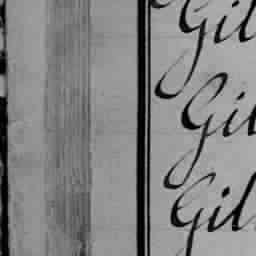 Gil
Gil
Gil